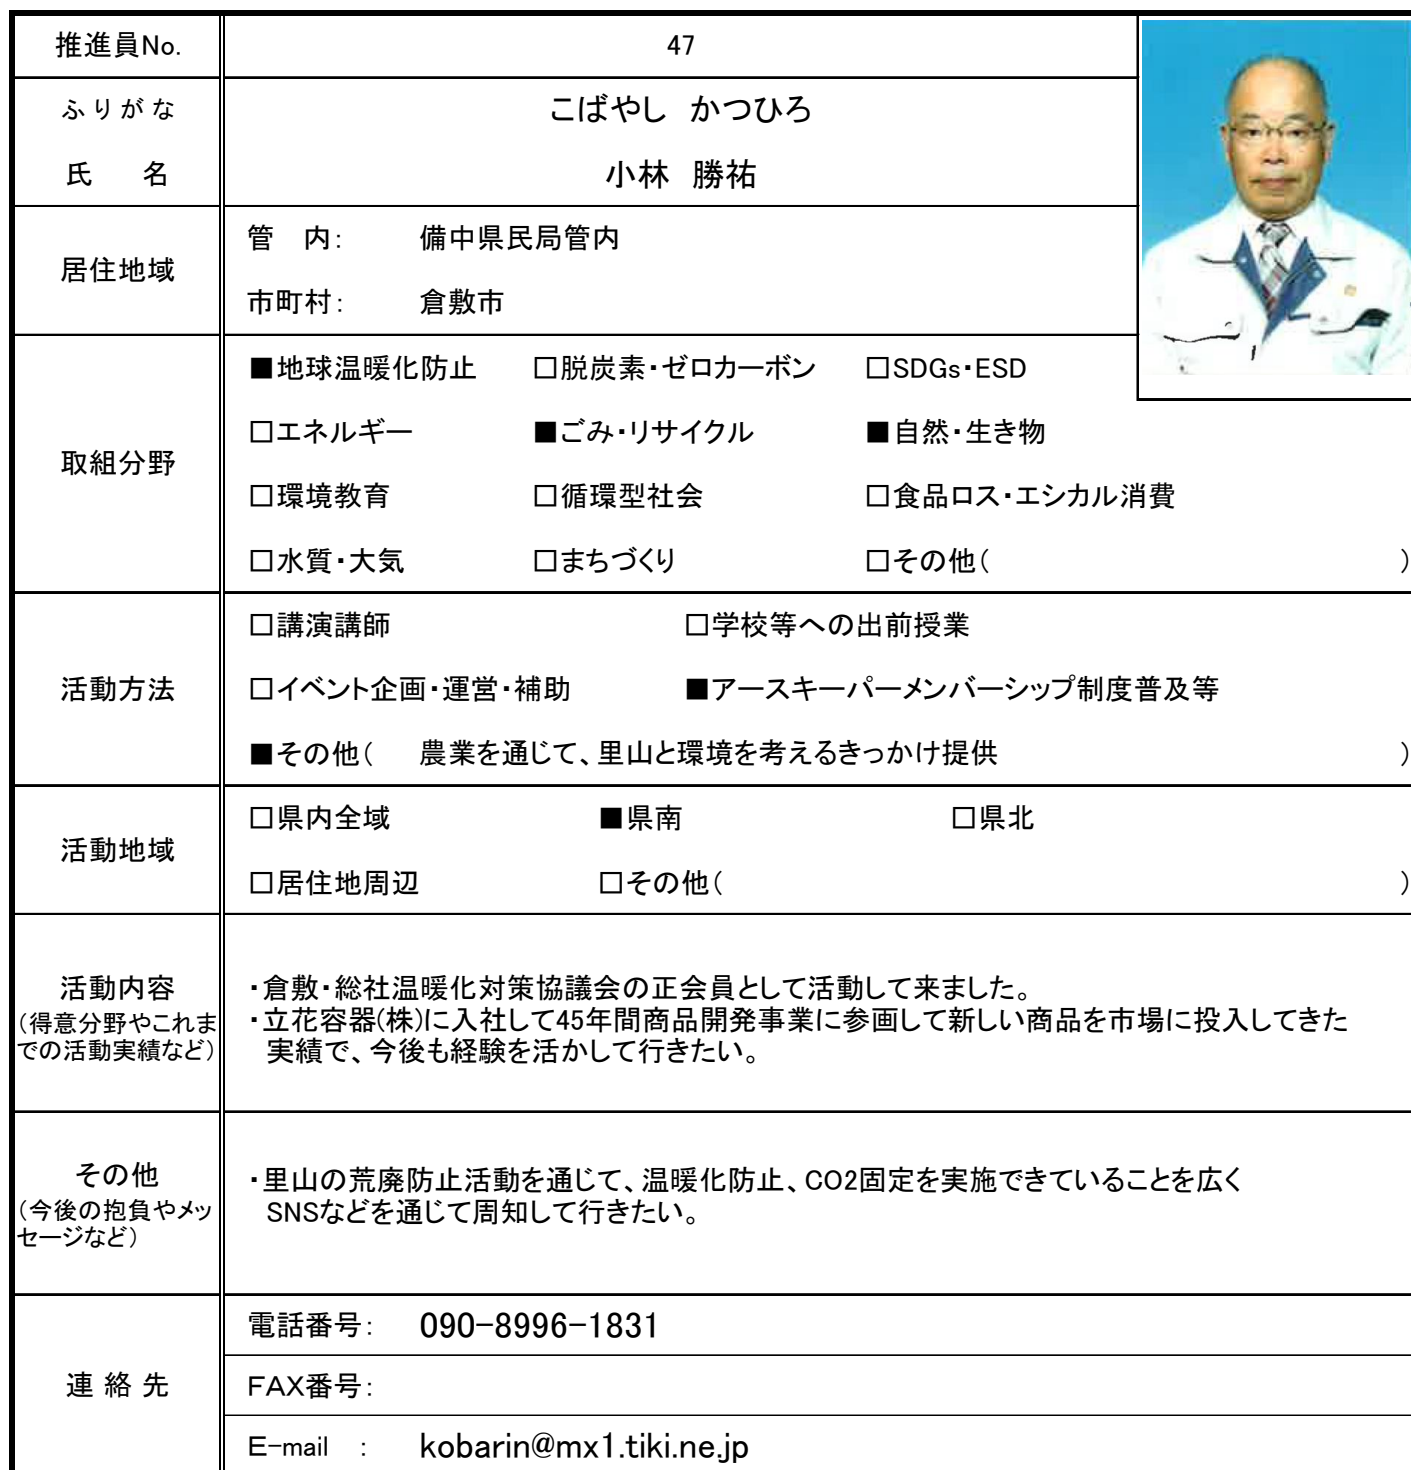 推進員No.　47
ふりがな　こばやし　かつひろ
氏　名　小林　勝祐
居住地域
管　内：　備中県民局管内
市町村：　倉敷市
取組分野
■地球温暖化防止　□脱炭素・ゼロカーボン　□SDGs・ESD
□エネルギー　■ごみ・リサイクル　■自然・生き物
□環境教育　□循環型社会　□食品ロス・エシカル消費
□水質・大気　□まちづくり　□その他（　）
活動方法
□講演講師　□学校等への出前授業
□イベント企画・運営・補助　■アースキーパーメンバーシップ制度普及等
■その他（　農業を通じて、里山と環境を考えるきっかけ提供　）
活動地域
□県内全域　■県南　□県北
□居住地周辺　□その他（　）
活動内容
（得意分野やこれま
での活動実績など）
・倉敷・総社温暖化対策協議会の正会員として活動して来ました。
・立花容器(株)に入社して45年間商品開発事業に参画して新しい商品を市場に投入してきた
実績で、今後も経験を活かして行きたい。
その他
（今後の抱負やメッ
セージなど）
・里山の荒廃防止活動を通じて、温暖化防止、CO2固定を実施できていることを広く
SNSなどを通じて周知して行きたい。
連絡先
電話番号：　090-8996-1831
FAX番号：
E-mail　：　kobarin@mx1.tiki.ne.jp